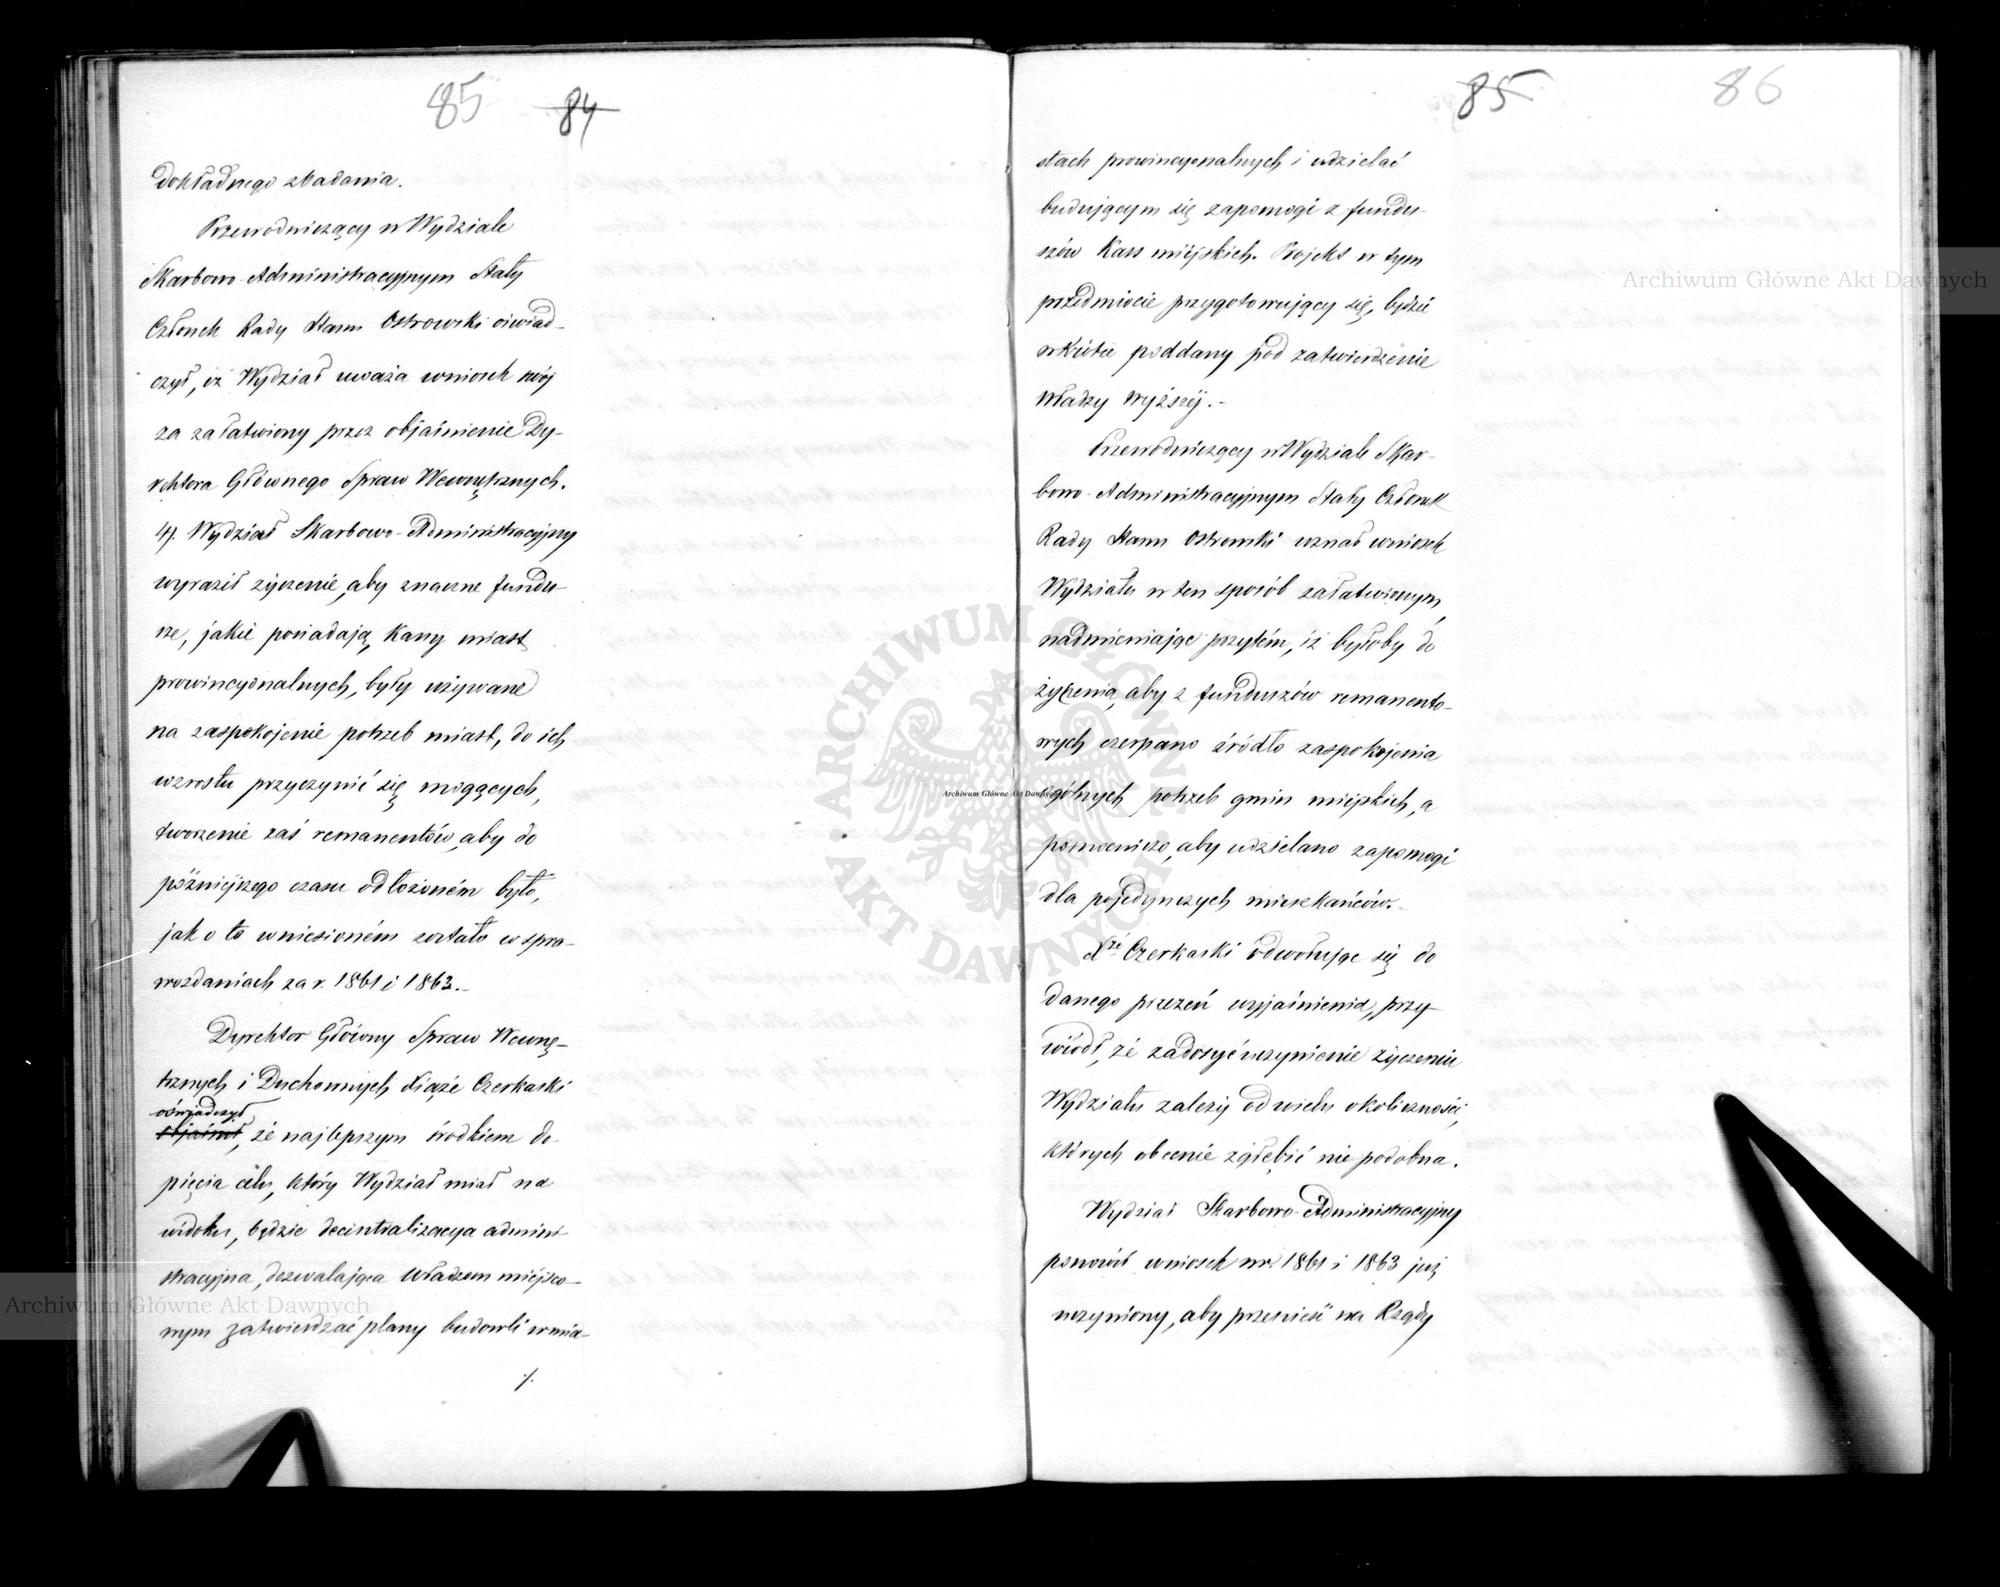 85 84
dokładnego zbadania.
Przewodniczący w Wydziale
Skarbowo-Administracyjnym Stały
Członek Rady Stanu Ostrowski oświad-
czył, iż Wydział uważa wniosek swój
za załatwiony przez objaśnienie Dy-
rektora Głównego Spraw Wewnętrznych.
4). Wydział Skarbowo-Administracyjny
wyraził życzenie, aby znaczne fundu-
sze, jakie posiadają Kassy miast
prowincyonalnych, były używane
na zaspokojenie potrzeb miast, do ich
wzrostu przyczynić się mogących,
tworzenie zaś remanentów, aby do
późniejszego czasu odłożoném było,
jak o to wniesioném zostało w spra-
wozdaniach za r. 1861 i 1863.-
Dyrektor Główny Spraw Wewnę-
trznych i Duchownych Xiąże Czerkaski
oświadczył
objaśnił, że najlepszym środkiem do-
pięcia celu, który Wydział miał na
widoku, będzie decentralizacya admini-
stracyjna, dozwalająca Władzom miejsco-
wym zatwierdzać plany budowli w mia-
./.
85 86
stach prowincyonalnych i udzielać
budującym się zapomogi z fundu-
szów Kass miéjskich. Projekt w tym
przedmiocie przygotowujący się, będzie
wkrótce poddany pod zatwierdzenie
władzy wyższéj.-
Przewodniczący w Wydziale Skar-
bowo-Administracyjnym Stały Członek
Rady Stanu Ostrowski uznał wniosek
Wydziału w ten sposób załatwionym,
nadmieniając przytém, iż byłoby do
życzenia, aby z funduszów remanento-
wych czerpano źródło zaspokojenia
ogólnych potrzeb gmin miejskich, a
pomocniczo, aby udzielano zapomogi
dla pojedynczych mieszkańców.-
Xże Czerkaski odwołując się do
danego przezeń wyjaśnienia, przy-
wiódł, że zadosyćuczynienie życzeniu
Wydziału zależy od wielu okoliczności,
których obecnie zgłębić nie podobna.
Wydział Skarbowo-Administracyjny
ponowił wniosek w r. 1861 i 1863 już
uczyniony, aby przenieść na Rządy
Archiwum Główne Akt Dawnych
Archiwum Główne Akt Dawnych
Archiwum Główne Akt Dawnych
ARCHIWUM GŁÓWNE AKT DAWNYCH